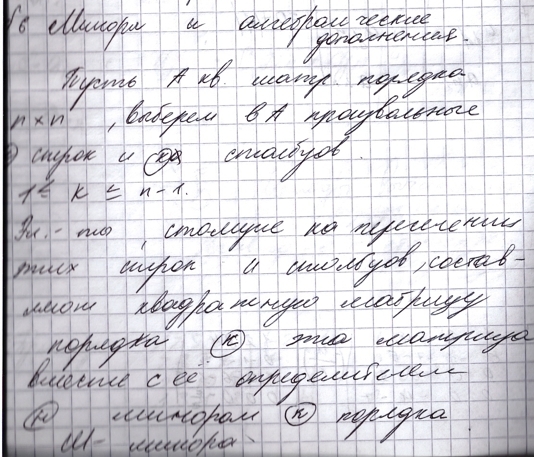 №6 Миноры и алгебраические
дополнения.
Пусть А кв. матр. порядка
n×n , выберем в А произвольные
строк и столбцов.
1 ≤ k ≤ n-1.
Эл.-ты , стоящие на пересечении
этих строк и столбцов, состав-
ляют квадратную матрицу
порядка к эта матрица
вместе с её определителем
минором к порядка
М - минора